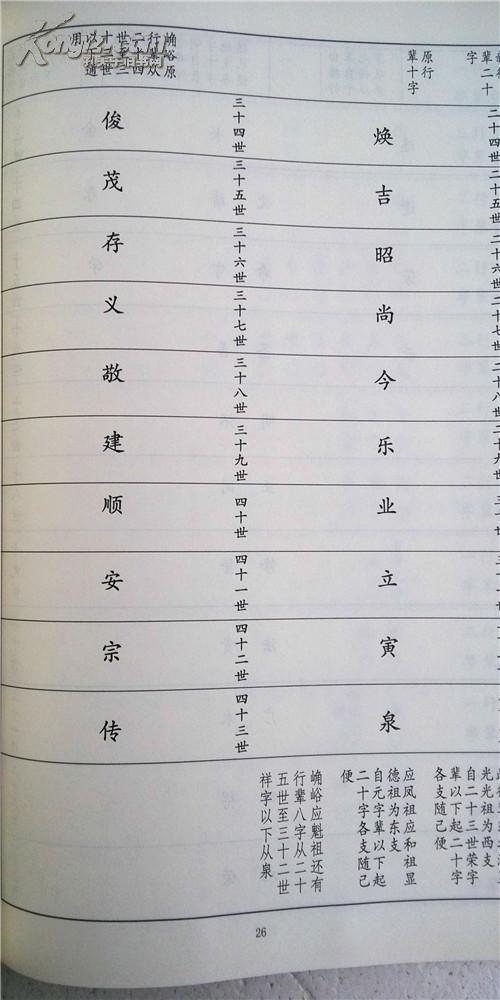 辈二十
字
原行
辈十字
二十四世
焕
二十五世
吉
二十六世
昭
二十七世
尚
二十八世
今
二十九世
乐
业
立
寅
泉
光光祖为西支
自二十三世荣字
辈以下起二十字
各支随己便
应凤祖应和祖显
德祖为东支
自元字辈以下起
二十字各支随己
便
崅峪原
行辈众
二十四
世至三
十三世
以通
用
三十四世
俊
三十五世
茂
三十六世
存
三十七世
义
三十八世
敬
三十九世
建
四十世
顺
四十一世
安
四十二世
宗
四十三世
传
崅峪应魁祖还有
行辈八字从二十
五世至三十二世
祥字以下从泉
26